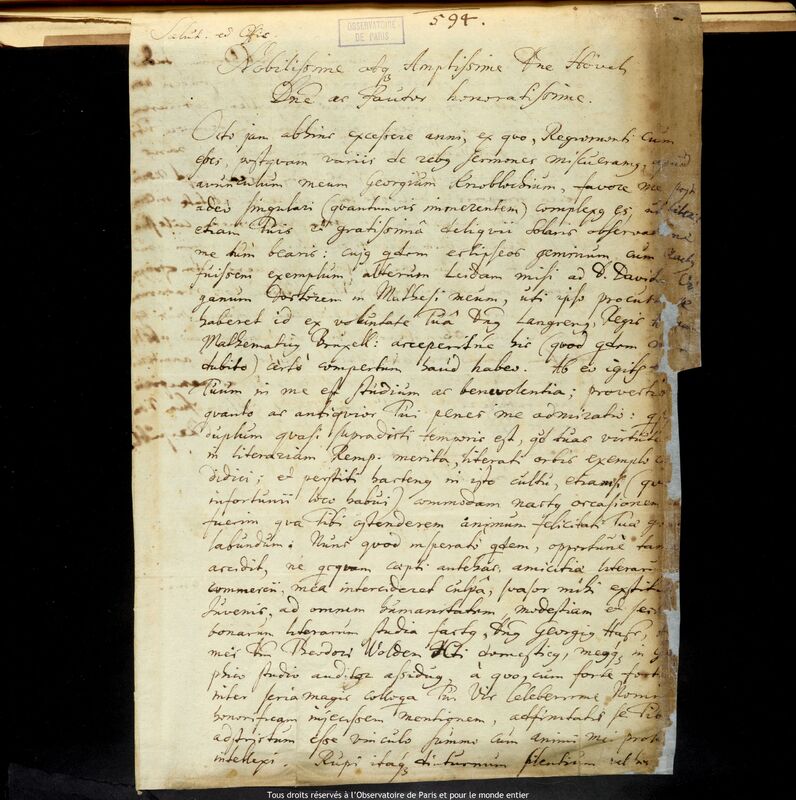 594.
Salut. ed Offic.
OBSERVATOIRE
DE PARIS
Nobilissime atq; Amplissime Dne Höveli
Dne ac Fautor honoratissime.
Octo jam abhinc excessere anni, ex quo, Regiomonti cum
esses, postquam variis de rebg sermones miscueramg, apud
avunculum meum Georgium Knoblochium, favore me post
adeo singulari (quantumvis immerentem) complexg es, ut literis
etiam Tuis & gratissimâ deliquii Solaris observa
me tum bearis: cujg qdem eclipseos geminum, cum
fuissem exemplum, alterum Leidam misi ad D. David
ganum Doctorem in Mathesi meum, uti ipso procura
haberet id ex voluntate Tuâ Dng Langreng, Regis
Mathematicg Bruxell: acceperitne hic (quod qdem
dubito) certò compertum haud habeo. Ab eo igitur
Tuum in me est studium ac benevolentia; provectior
quanto ac antiquior Tui penes me admiratio:
duplum quasi supradicti temporis est, qd tuas virtute
in literariam Remp. merita, literati orbis exemplo
didici; et perstiti hacteng in isto cultu, etiamsi (qu
infortunii loco habui) commodam nactg occasionem
fuerim qua Tibi ostenderem animum felicitati Tuae
labundum. Nunc quod insperati qdem, opportunè tam
accidit, ne qcquam coepti antehac, amicitiae literari
commercii, meâ intercideret culpâ, suasor mihi extiti
Juvenis, ad omnem humanitatem, modestiam et
bonarum literarum studia factg, Dng Georgig Hafe,
mei Dn Theodori Wolden ICti domesticg, meqq; in
phico studio auditor assidug, à quo, cum forte
inter seria magis colloqa Tui Vir Celeberrime Nomi
honorificam injecissem mentionem, affinitatis se Tib
adstrictum esse vinculo summo cum animi mei
intellexi. Rupi itaq; diuturnum silentium